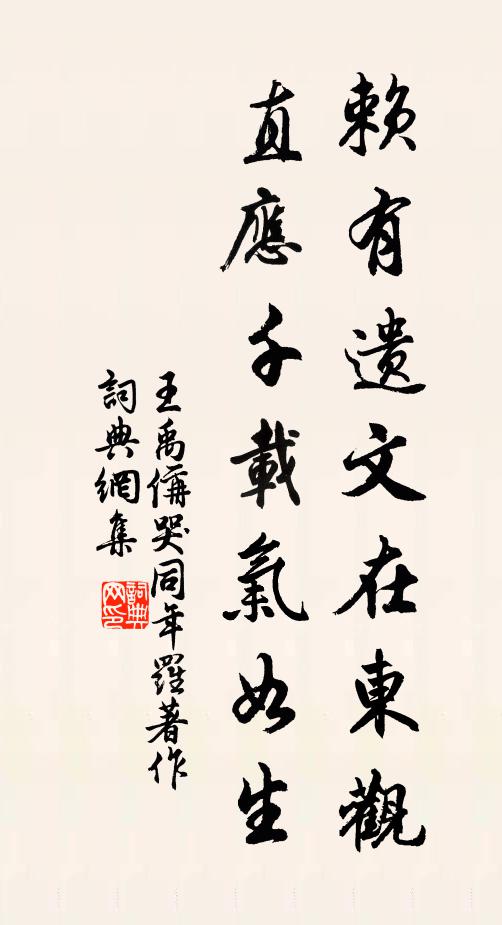 賴有遺文在東觀
直應千載氣如生
王禹偁哭同年羅著作
詞典網集
詞典网印